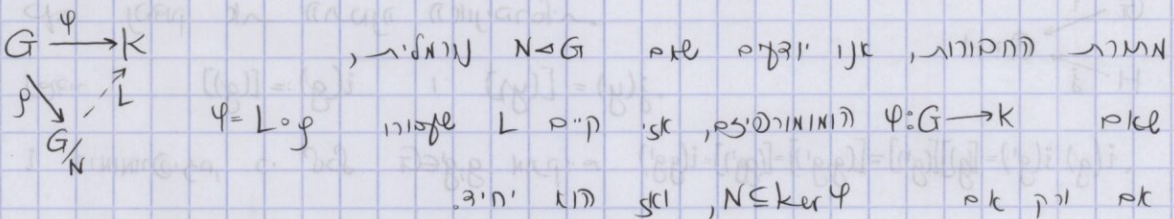 G —φ→ K
ρ L
G/N
מתורת החבורות, אנו יודעים שאם N◁G נורמלית,
שאם φ:G⟶K הומומורפיזם, אזי קיים L שעבורו φ=L∘ρ
אם ורק אם N⊆kerφ, ואז הוא יחיד.